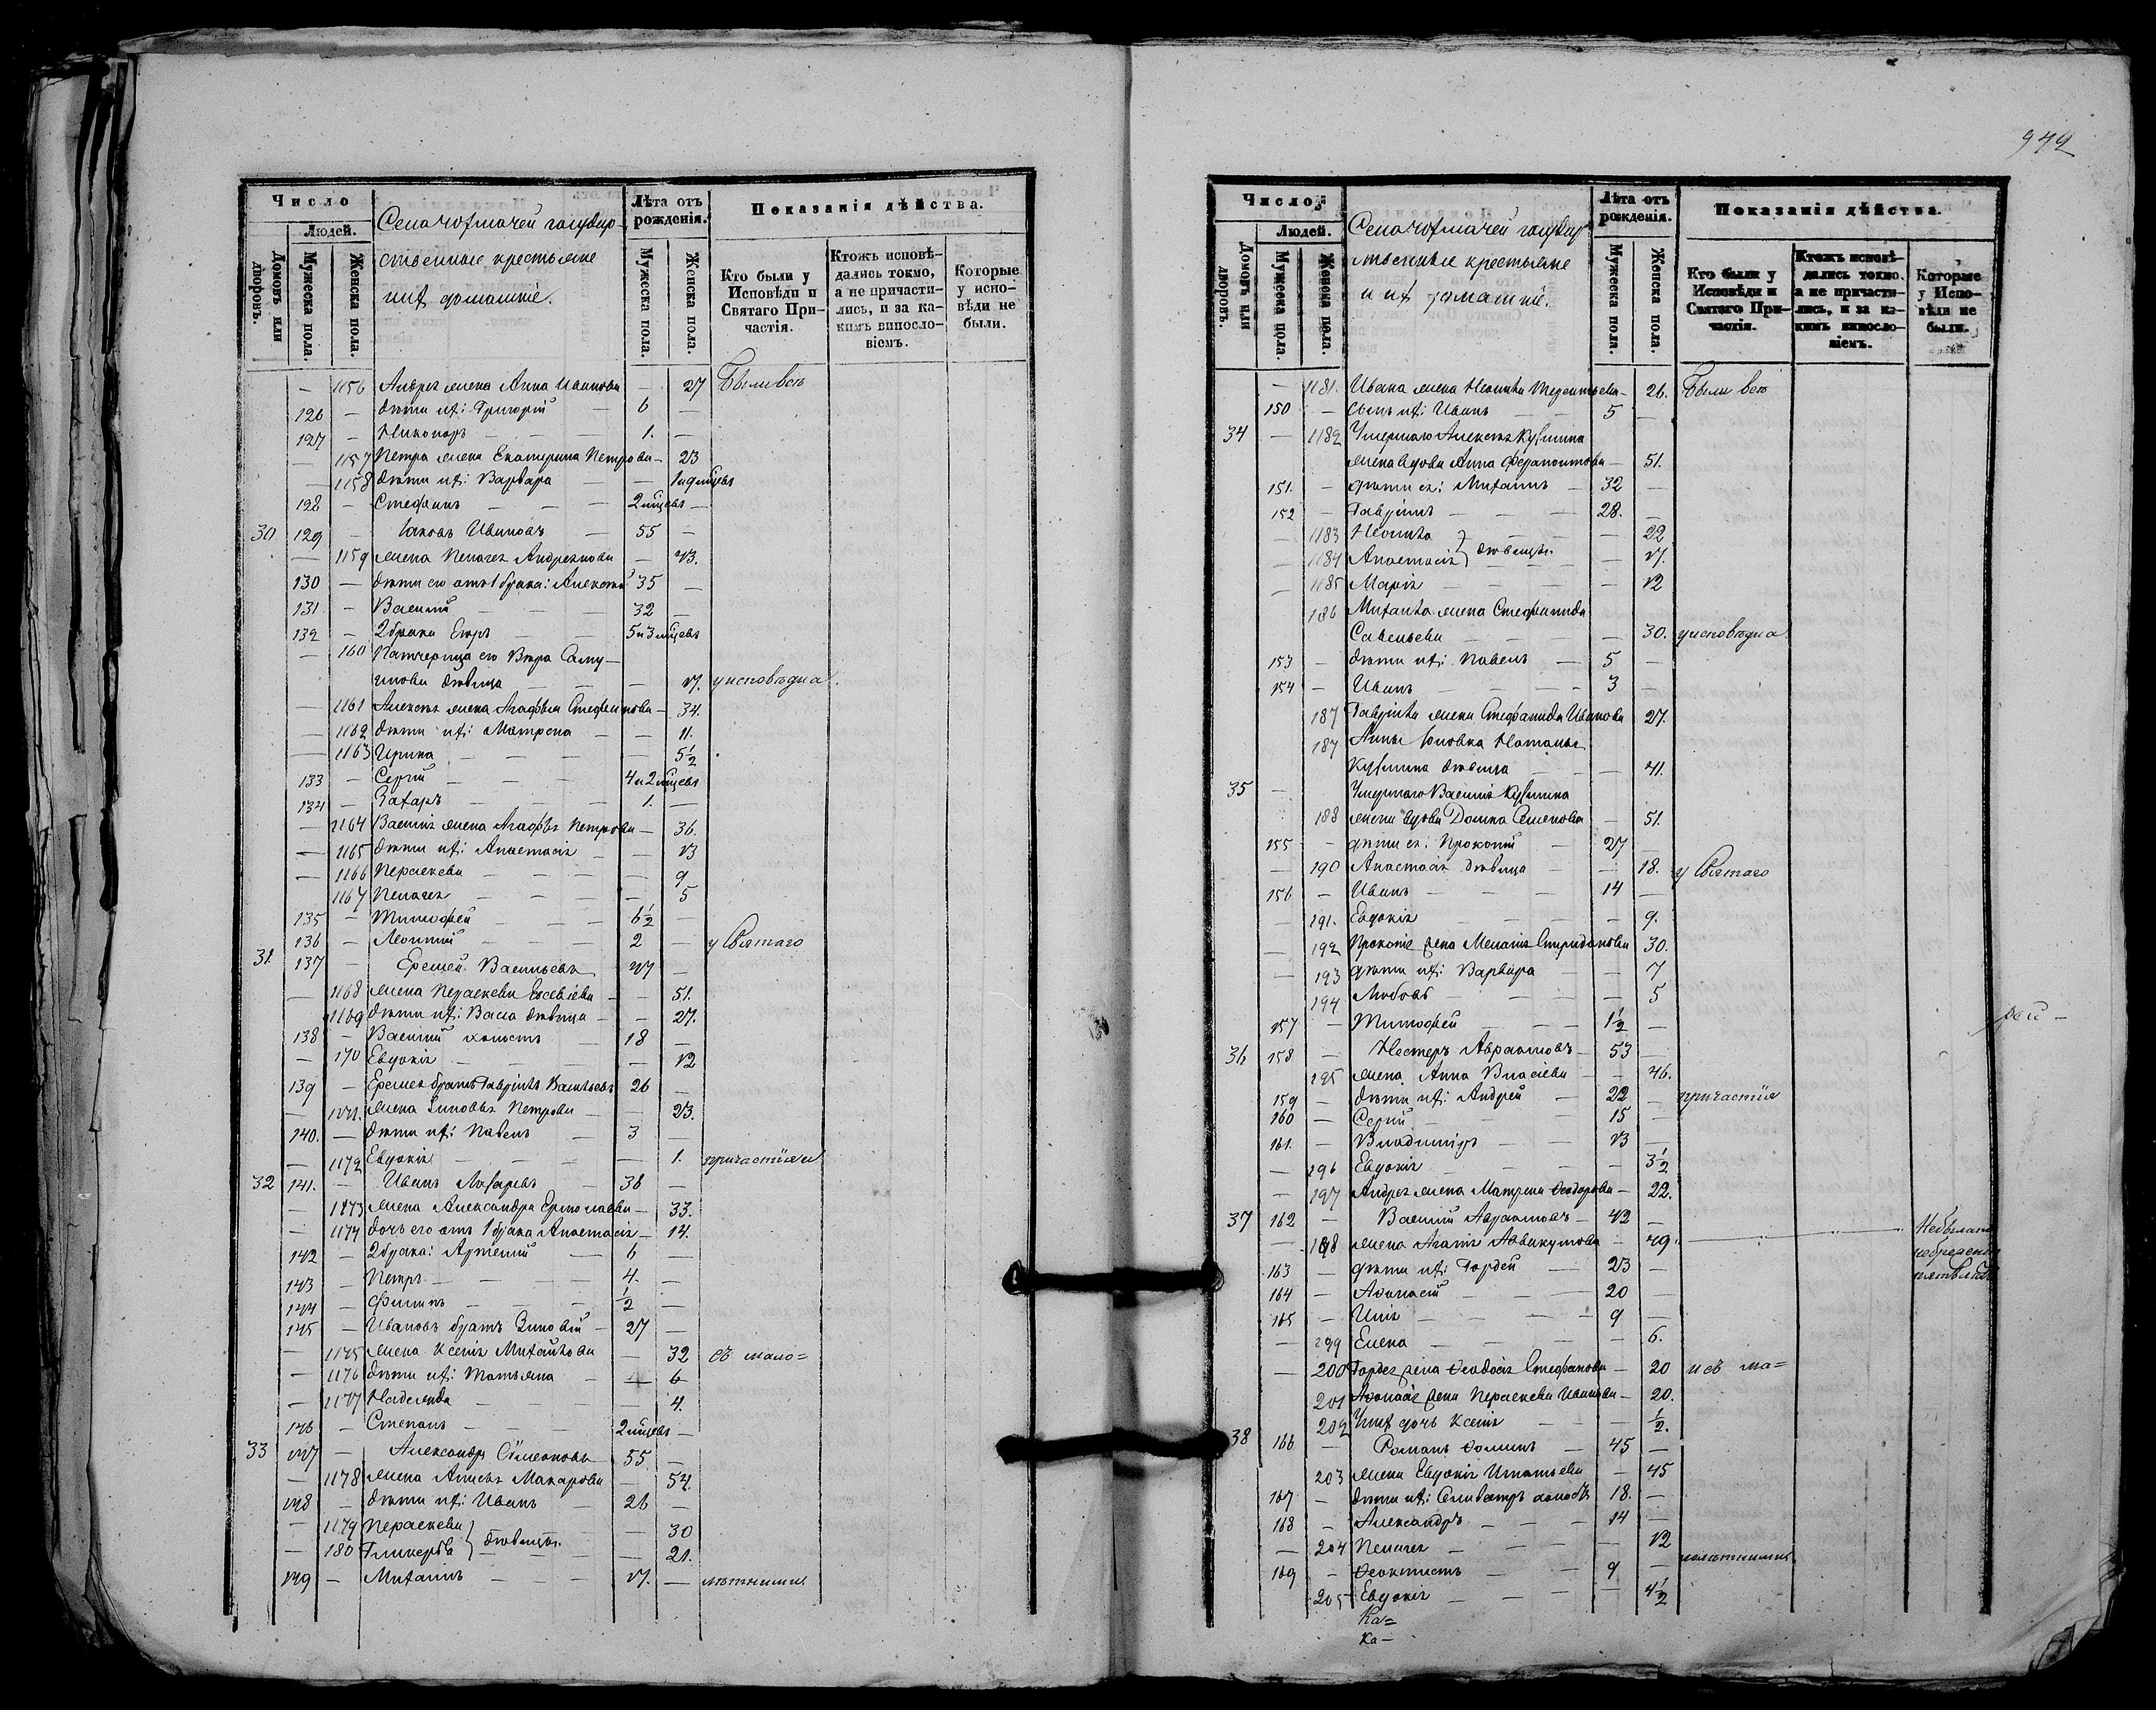 Число
Людей.
Домовъ или дворовъ.
Мужеска пола.
Женска пола.
государ-
ственные крестьяне
ихъ домашніе.
Лѣта отъ рожденія.
Мужеска пола.
Женска пола.
Показанія дѣйства.
Кто были у Исповѣди и Святаго Причастія.
Ктожъ исповѣдались токмо, а не причастились, и за какимъ винословіемъ.
Которые у исповѣди не были.
— 1156 жена Анна Иванова — 27 Были всѣ
126 — дѣти ихъ: Григорій — 6 —
127 — Никоноръ — 1. —
— 1157 Петра жена Екатерина Петрова — 23
— 1158 дѣти ихъ: Варвара —
128 — Стефанъ — 2 мѣсев —
30 129 — Іаковъ Ивановъ — 55 —
— 1159 жена Пелагея Андреянова — 43.
130 — дѣти его отъ 1 брака: Алексѣй 35 —
131 — Василій — 32 —
132 — 2 брака Егоръ — 5 и 3 мѣсев
— 160 Падчерица его Вѣра
дѣвица — 17. у исповѣди и
— 1161 Алексѣя жена Агафья Стефанова — 34.
— 1162 дѣти ихъ: Матрена — 11.
— 1163 Ирина — 5½
133 — Сергій — 4 и 2 мѣсев
134 — Захаръ — 1. —
— 1164 Василія жена Агафья Петрова — 36.
— 1165 дѣти ихъ: Анастасія — 13
— 1166 Параскева — 9
— 1167 Пелагея — 5
135 — Тимофей — 6½ —
136 — Леонтій — 2 — у Святаго
31. 137 — Еремей Васильевъ 47 —
— 1168 жена Параскева Евсевіева — 51.
1169 дѣти ихъ: Васса дѣвица — 27.
138 — Василій холостъ — 18 —
— 170 Евдокія — 12
139 — Еремея братъ Гавріилъ Васильевъ 26 —
— 1171. жена Зиновья Петрова — 23.
140. — дѣти ихъ: Павелъ — 3 —
— 1172 Евдокія — 1. причастія и
32 141. — Иванъ Лазаревъ — 36 —
— 1173 жена Александра Ермолаева — 33.
— 1174 дочь его отъ 1 брака Анастасія — 14.
142 — 2 брака: Артемій — 6 —
143 — Петръ — 4. —
144 — Филипъ — ½ —
145 — Ивановъ братъ Зиновій — 27 —
— 1175 жена Ксенія Михайлова — 32 съ мало=
— 1176 дѣти ихъ: Татьяна — 6
— 1177 Надежда — 4.
146 — Степанъ — 2 мѣсев —
33 147 — Александръ Симеоновъ 55 —
— 1178 жена Агафья Макарова — 54.
148 — дѣти ихъ: Иванъ — 26 —
— 1179 Параскева } дѣвицы. — 30
— 180 Гликерья — 21.
149 — Михаилъ — 17. — лѣтними.
942
Число
Людей.
Домовъ или дворовъ.
Мужеска пола.
Женска пола.
государ-
ственные крестьяне
и ихъ домашніе.
Лѣта отъ рожденія.
Мужеска пола.
Женска пола.
Показанія дѣйства.
Кто были у Исповѣди и Святаго Причастія.
Ктожъ исповѣдались токмо, а не причастились, и за какимъ винословіемъ.
Которые у Исповѣди не были.
— 1181. Ивана жена Неонила Терентьева — 26. Были всѣ
150 — сынъ ихъ: Иванъ — 5 —
34 — 1182 Умершаго Алексѣя
жена вдова Анна Ферапонтова — 51.
151. — дѣти ея: Михаилъ — 32 —
152 — Гавріилъ — 28. —
— 1183 Неонила } дѣвицы. — 22
— 1184 Анастасія — 17.
— 1185 Марія — 12
186 Михаила жена Стефанида
Савельева — 30. у исповѣди и
153 — дѣти ихъ: Павелъ — 5 —
154 — Иванъ — 3 —
187 Гавріила жена Стефанида Иванова 27.
187 Анны золовка Наталья
дѣвица — 41.
35 — Умершаго Василія
188 жена вдова Домна Семенова — 51.
155 — дѣти ея: Прокопій — 27 —
— 190 Анастасія дѣвица — 18. у Святаго
156 — Иванъ — 14 —
— 191. Евдокія — 9.
— 192 Прокопія жена Меланія Спиридонова 30.
— 193 дѣти ихъ: Варвара — 7
194 Любовь — 5
157 — Тимофей — 1½ —
36 158 — Несторъ Авраамовъ — 53 —
195 жена Анна Власіева — 46.
159 — дѣти ихъ: Андрей — 22 — причастія
160 — Сергій — 15 —
161. — Владиміръ — 13 —
— 196 Евдокія — 3½
— 197 Андрея жена Матрена Ѳеодорова — 22.
37 162 — Василій Авраамовъ — 42 —
— 198 жена Агапія Аввакумова — 49. Не была по
163 — дѣти ихъ: Гордей — 23 —
164 — Аѳанасій — 20 —
165 — Илія — 9 —
— 199 Елена — 6.
— 200 Гордея жена Ѳеодосія Стефанова — 20 и съ ма=
201 Аѳанасія жена Параскева Иванова — 20.
202 Ихъ дочь Ксенія — ½.
38 166 — Романъ Ѳоминъ — 45 —
203 жена Евдокія Игнатьева — 45
167 — дѣти ихъ: Селиверстръ холостъ 18. —
168 — Александръ — 14 —
— 204 Пелагея — 12
169 — Ѳеоктистъ — 9 — лолѣтними.
205 Евдокія — 4½
Ка=
Ка—